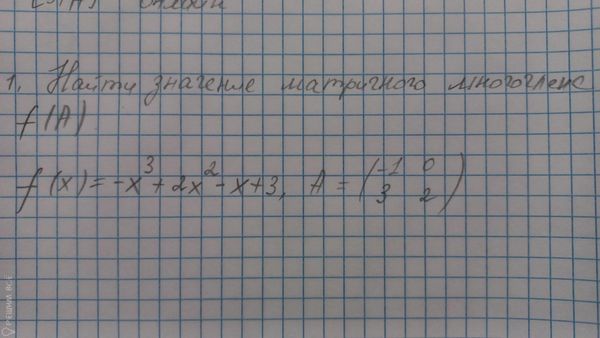 1. Найти значение матричного многочлена
f(A)
f(x) = -x³ + 2x² - x + 3, A = (-1 0
3 2)
РЕШИМ ВСЁ